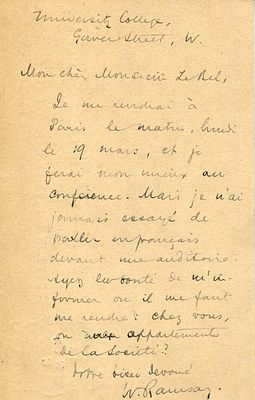 University College,
Gower Street, W.
Mon cher Monsieur Le Bel,
Je me rendrai à
Paris le matin, lundi
le 19 mars, et je
ferai mon mieux au
conférence. Mais je n'ai
jammais essayé de
parler en français
devant une auditoire.
Ayez la bonté de m'in-
former on il me faut
me rendre: chez vous,
ou aux appartements
de la Société?
Votre bien devoué
W. Ramsay.